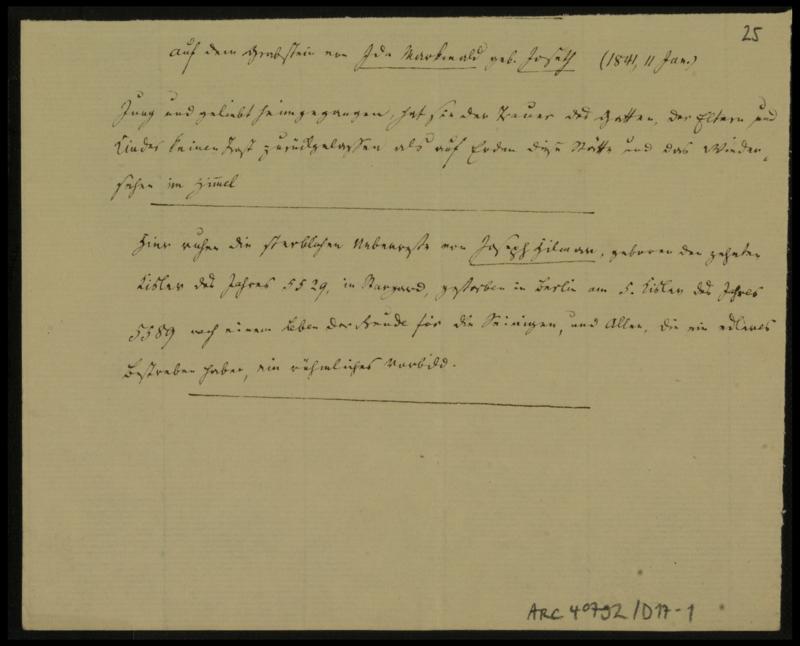 25
Auf dem Grabstein von Ida Markwald geb. Joseph (1841, 11 Jan.)
Jung und geliebt heimgegangen, hat sie der Trauer des Gatten, der Eltern und
Kindes keinen Trost zurückgelassen als auf Erden diese Stätte und das Wieder-
sehen im Himmel
Hier ruhen die sterblichen Ueberreste von Joseph Hilmar, geboren den zehnten
Kislev des Jahres 5529, in Stargard, gestorben in Berlin am 5. Kislev des Jahres
5589 nach einem Leben der Freude für die Seinigen, und Allen, die ein edleres
Bestreben haben, ein rühmliches Vorbild.
ARC 4° 792/D17-1